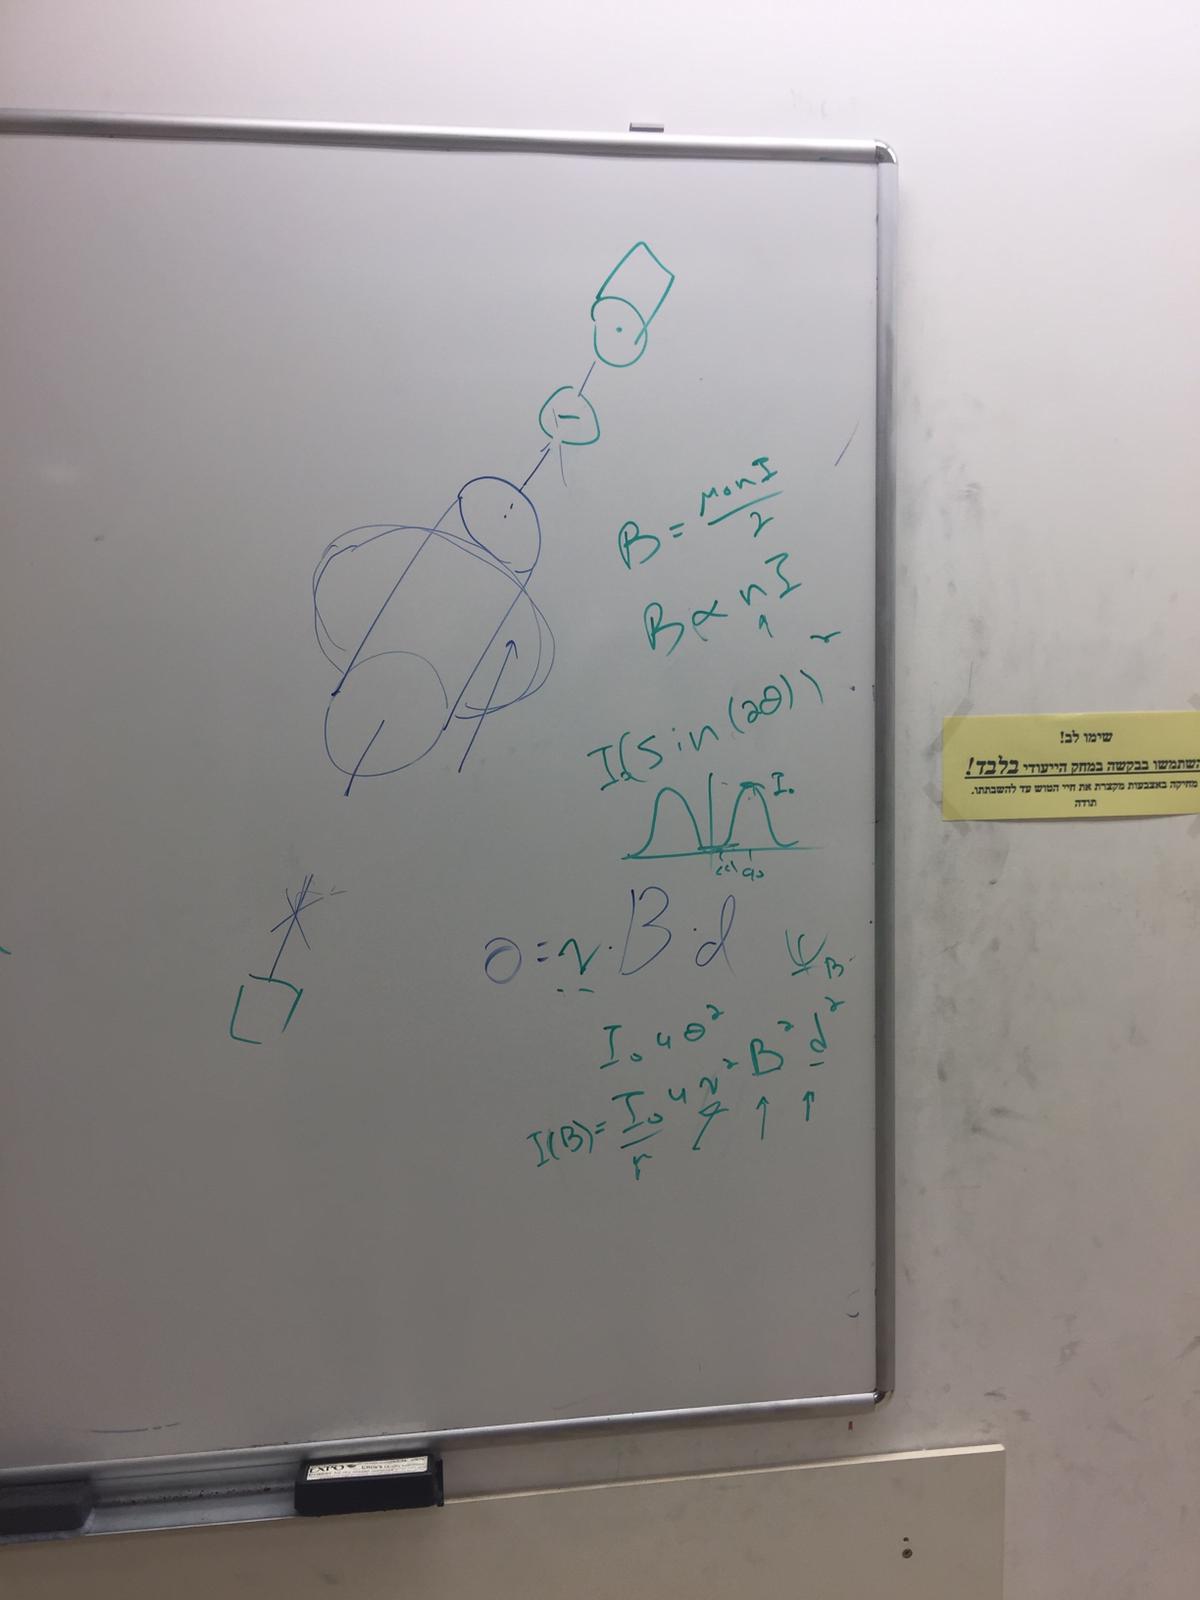 B = μ₀nI / 2
B ∝ nI
I₀(sin(2θ))²
I₀
90
θ = ν · B · d
B
I₀ 4 θ²
I(B) = I₀ 4 ν² B² d²
r
שימו לב!
השתמשו בבקשה במחק הייעודי בלבד!
מחיקה באצבעות מקצרת את חיי הטוש עד להשבתתו.
תודה
EXPO